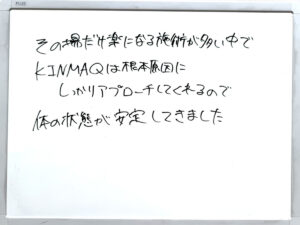 その場だけ楽になる施術が多い中で
KINMAQは根本原因に
しっかりアプローチしてくれるので
体の状態が安定してきました